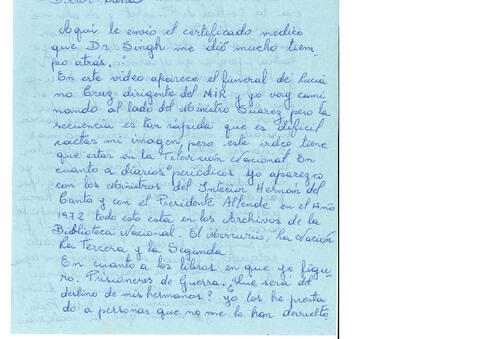 Aqui le envío el certificado medico
que Dr Singh me dió mucho tiem-
po atrás.
En este video aparece el funeral de Lucia
no Cruz dirigente del MIR y yo voy cami
nando al lado del Ministro Suarez pero la
secuencia es tan rápida que es dificil
captar mi imagen, pero este video tiene
que estar en la Televisión Nacional. En
cuanto a diarios periódicos yo aparezco
con los Ministros del Interior Hernán del
Canto y con el Presidente Allende en el Año
1972 todo esto está en los Archivos de la
Biblioteca Nacional. El Mercurio, la Nación
La Tercera y la Segunda.
En cuanto a los libros en que yo figu
ro. Prisioneros de Guerra. ¿Que será del
destino de mis hermanos? yo los he presta
do a personas que no me lo han devuelto.